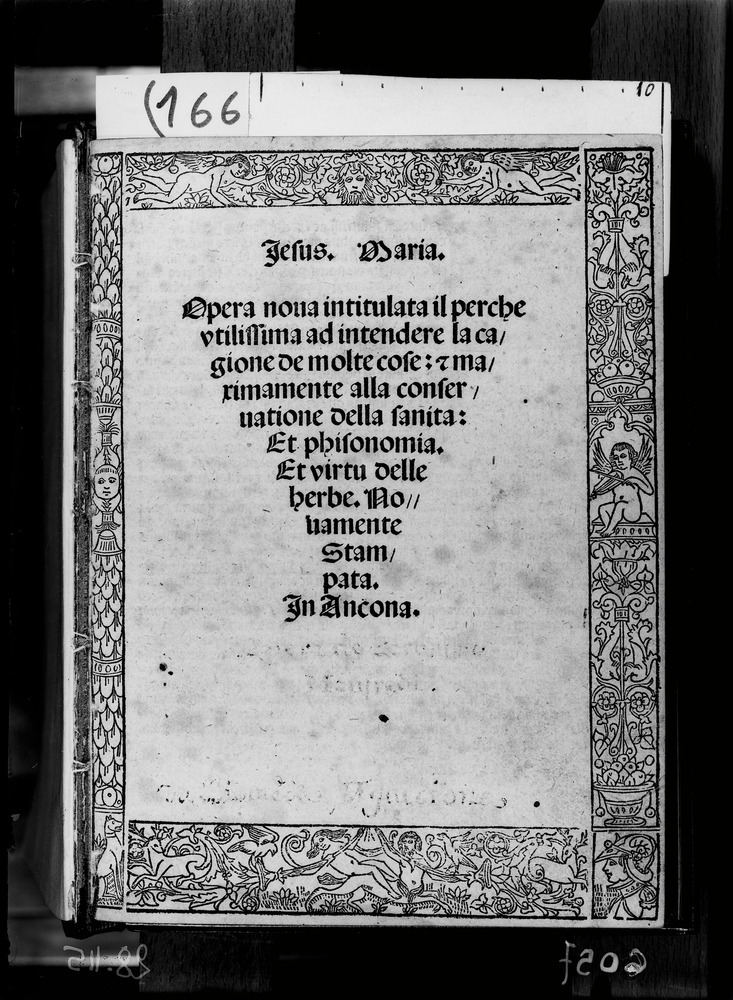 (166
10
Jesus. Maria.
Opera noua intitulata il perche
vtilissima ad intendere la ca/
gione de molte cose: ⁊ ma/
ximamente alla conser/
uatione della sanita:
Et phisonomia.
Et virtu delle
herbe. No//
uamente
Stam/
pata.
In Ancona.
28.115
6057